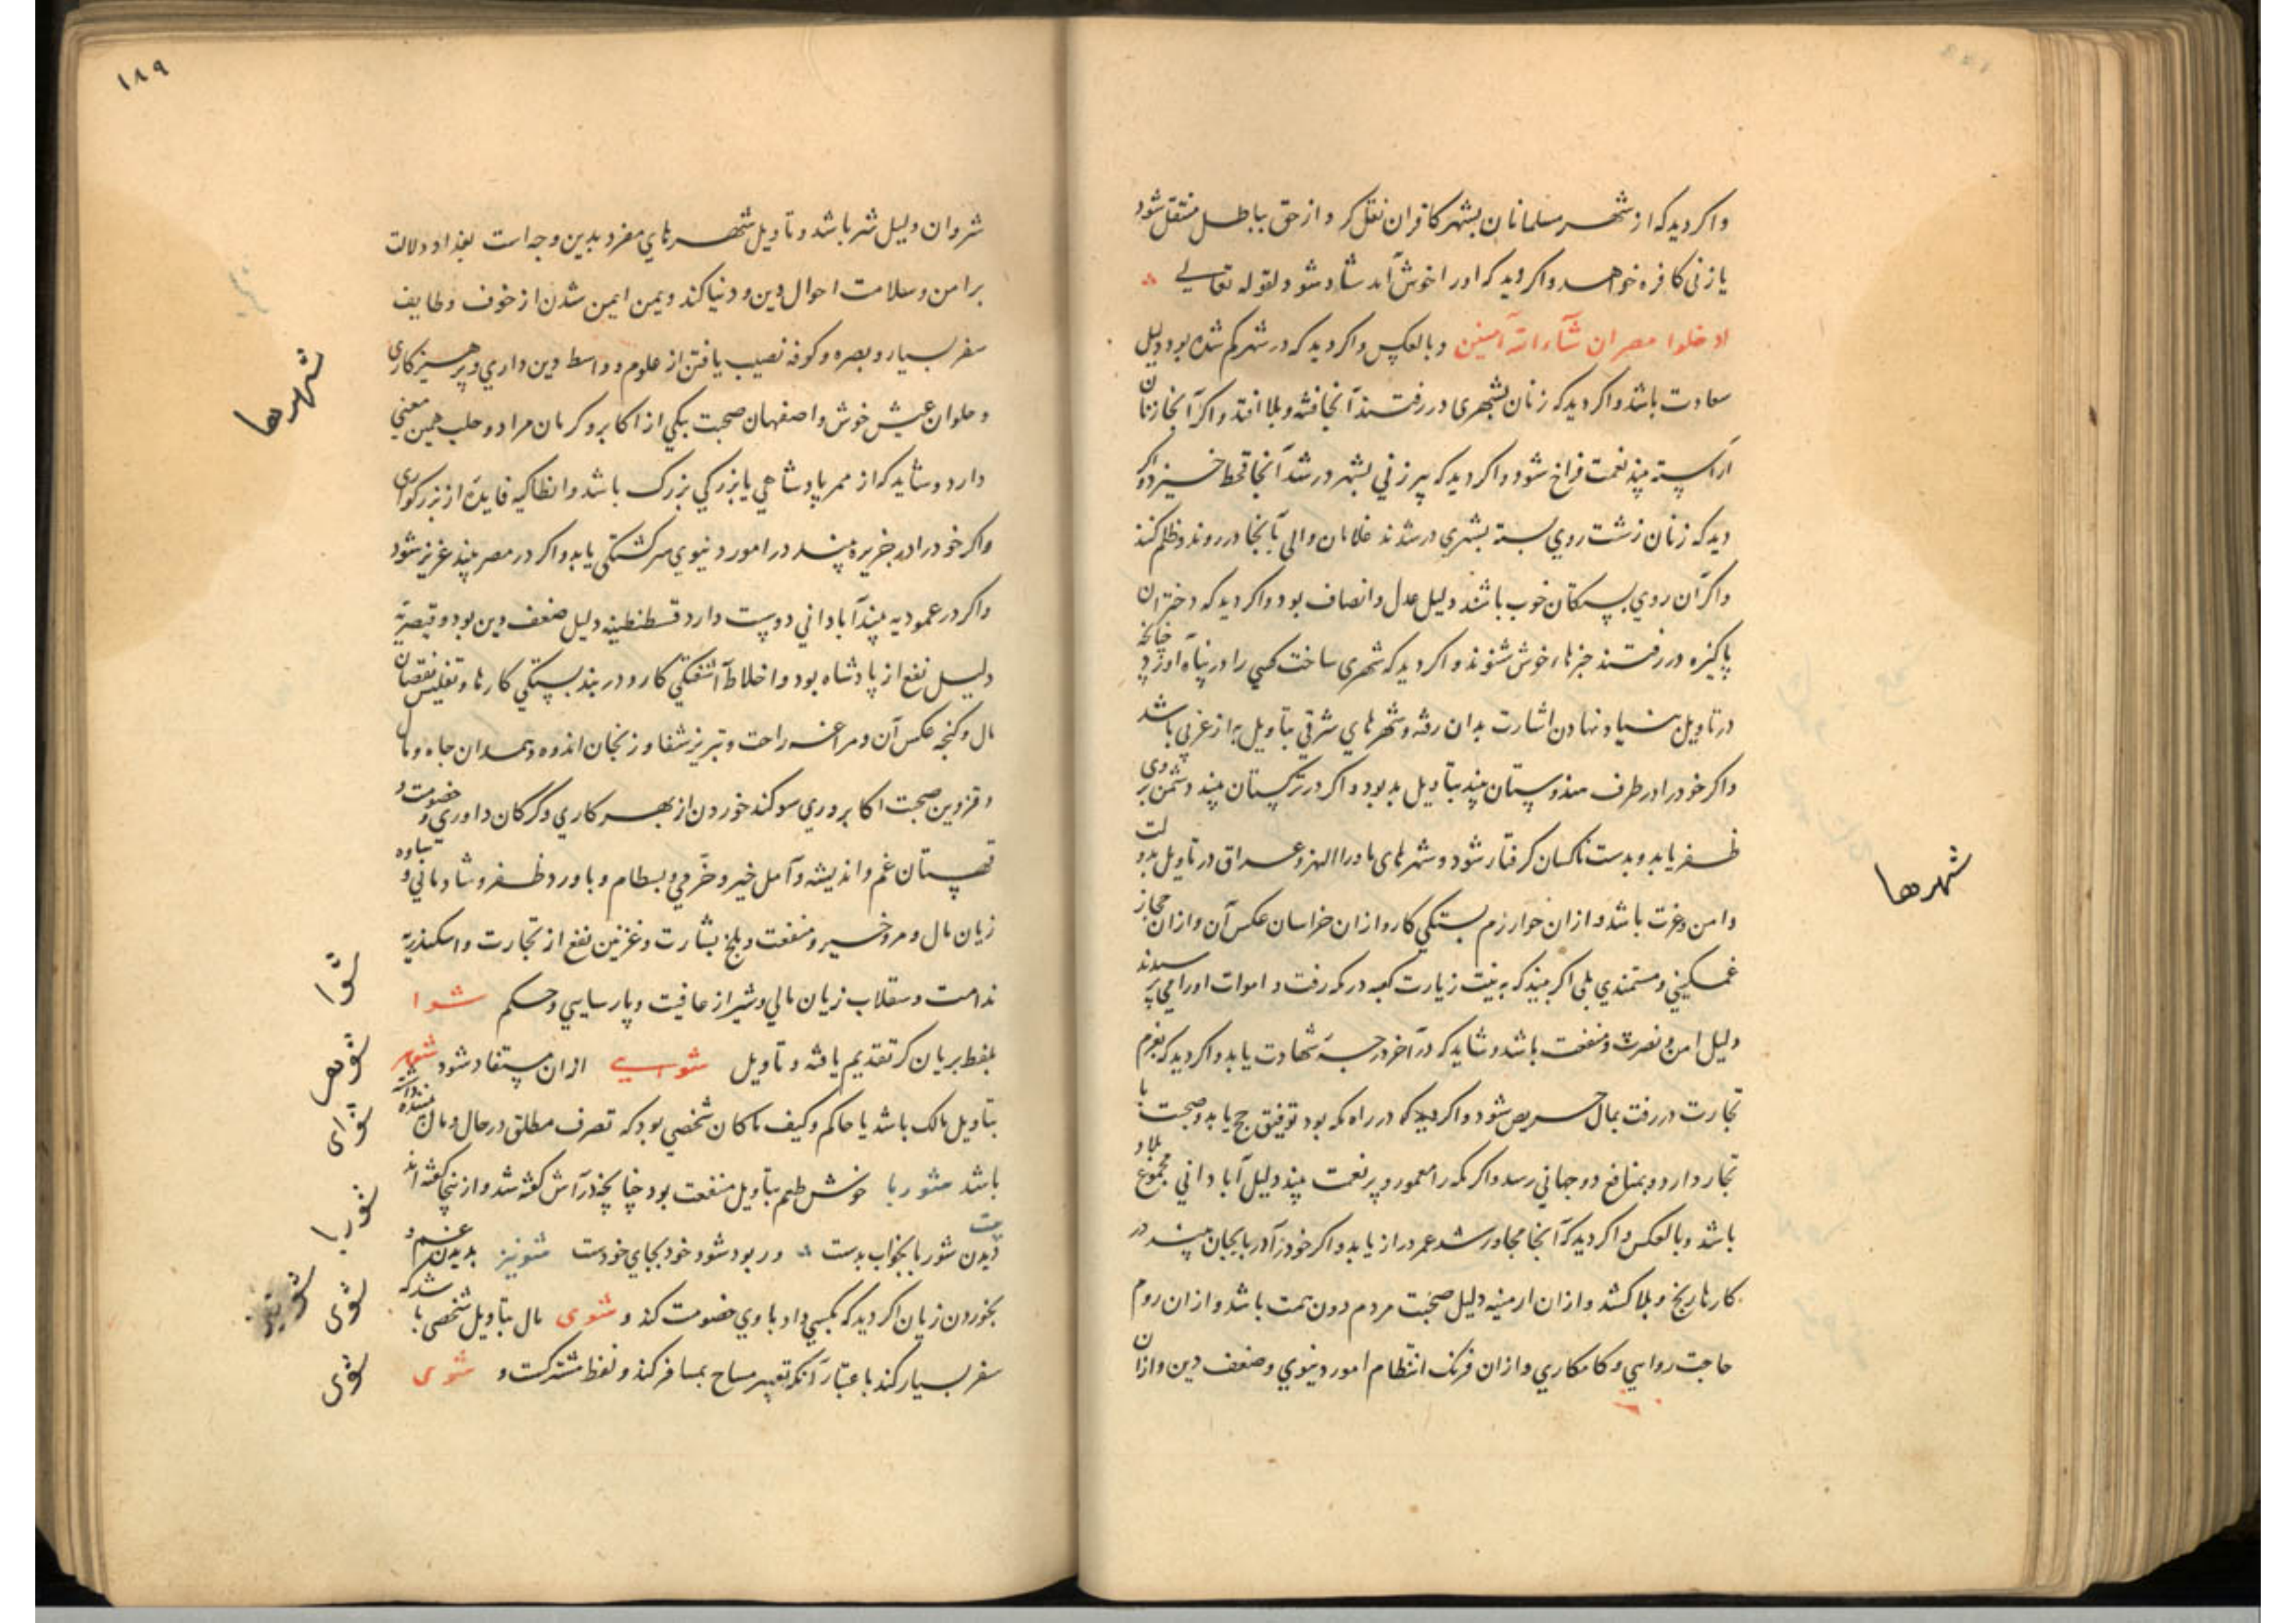 واکر دید که از شهر مسلمانان بشهر کافران نقل کرد از حق بباطل منتقل شود
یا زنی کافره خواهد واکر دید که او را خوش آمد شاد شود لقوله تعالی
ادخلوا مصر ان شآء الله آمنین وبالعکس واکر دید که در شهر کم شده بود دلیل
سعادت باشد واکر دید که زنان بشهری در رفتند آنجا فتنه و بلا افتد واکر آنجا زنان
آراسته بیند نعمت فراخ شود واکر دید که پیرزنی بشهر در شد آنجا قحط خیزد واکر
دید که زنان زشت روی بسته بشهری در شدند غلامان والی بآنجا در روند و ظلم کنند
واکر آن روی بستکان خوب باشند دلیل عدل و انصاف بود واکر دید که دختران
پاکیزه در رفتند خبرهاء خوش شنوند واکر دید که شهری ساخت کسی را در پناه آورد چنانچه
در تاویل بنیاد نهادن اشارت بدان رفته و شهرهای شرقی بتاویل به از غربی باشد
واکر خود را در طرف هندوستان بیند بتاویل بد بود واکر در ترکستان بیند دشمن بر وی
ظفر یابد و بدست ناکسان کرفتار شود و شهرهای ماوراالنهر و عراق در تاویل دولت
و امن و عزت باشد و از ان خوارزم بستکی کار و از ان خراسان عکس آن و از ان حجاز
غمکینی و مستمندی بلی اکر بیند که به نیت زیارت کعبه در مکه رفت و اموات او را می پرسیدند
دلیل امن و نصرت و منفعت باشد و شاید که در آخر درجهٔ شهادت یابد واکر دید که بعزم
تجارت در رفت بمال حریص شود واکر دید که در راه مکه بود توفیق حج یابد و صحبت با
تجار دارد و بمنافع دو جهانی رسد واکر مکه را معمور و پر نعمت بیند دلیل آبادانی مجموع بلاد
باشد وبالعکس واکر دید که آنجا مجاور شد عمر دراز یابد واکر خود در آذربایجان بیند در
کارها رنج و بلا کشد و از ان ارمنیه دلیل صحبت مردم دون همت باشد و از ان روم
حاجت روایی و کامکاری و از ان فرنک انتظام امور دنیوی و ضعف دین و ازان
شهرها
۱۸۹
شروان دلیل شر باشد و تاویل شهرهای مفرد بدین وجه است بغداد دلالت
بر امن و سلامت احوال دین و دنیا کند و یمن ایمن شدن از خوف و طایف
سفر بسیار و بصره و کوفه نصیب یافتن از علوم و واسط دین داری و پرهیزکاری
و حلوان عیش خوش و اصفهان صحبت یکی از اکابر و کرمان مراد و حلب همین معنی
دارد و شاید که از ممر پادشاهی یا بزرکی بزرک باشد و انطاکیه فایده از بزرکواری
واکر خود را در جزیره بیند در امور دنیوی سرکشتکی یابد واکر در مصر بیند عزیز شود
واکر در عمودیه بیند آبادانی دوست دارد قسطنطینه دلیل ضعف دین بود و قیصریه
دلیل نفع از پادشاه بود و اخلاط آشفتکی کار و دربند بستکی کارها و تفلیس نقصان
مال و کنجه عکس آن و مراغه راحت و تبریز شفا و زنجان اندوه و همدان جاه و مال
و قزوین صحبت اکابر و ری سوکند خوردن از بهر کاری و کرکان داوری و خصومت و
قهستان غم و اندیشه و آمل خیر و خرمی و بسطام و باورد ظفر و شادمانی و ساوه
زیان مال و مرو خیر و منفعت و بلخ بشارت و غزنین نفع از تجارت و اسکندریه
ندامت و سقلاب زیان مالی و شیراز عافیت و پارسایی و حکم شوا
بلفظ بریان کر تقدیم یافته و تاویل شوایی ازان مستفاد شود شوهر
بتاویل مالک باشد یا حاکم وکیف ماکان شخصی بود که تصرف مطلق در حال و مال بیننده داشته
باشد شوربا خوش طعم بتاویل منفعت بود چنانچه در آش کفته شد و از ینجا کفته اند
بیت دیدن شوربا بخواب بدست ور بود شود خود بجای خودست شونیز بدیدن غم و
بخوردن زیان اکر دید که بکسی داد با وی خصومت کند و شوی مال بتاویل شخصی باشد که
سفر بسیار کند باعتبار آنکه تعبیر مساح بمسافر کند و لفظ مشترکست و شوی
شهرها
شوا
شوهر
شوای
شوربا
شونیز
شوی
شوی